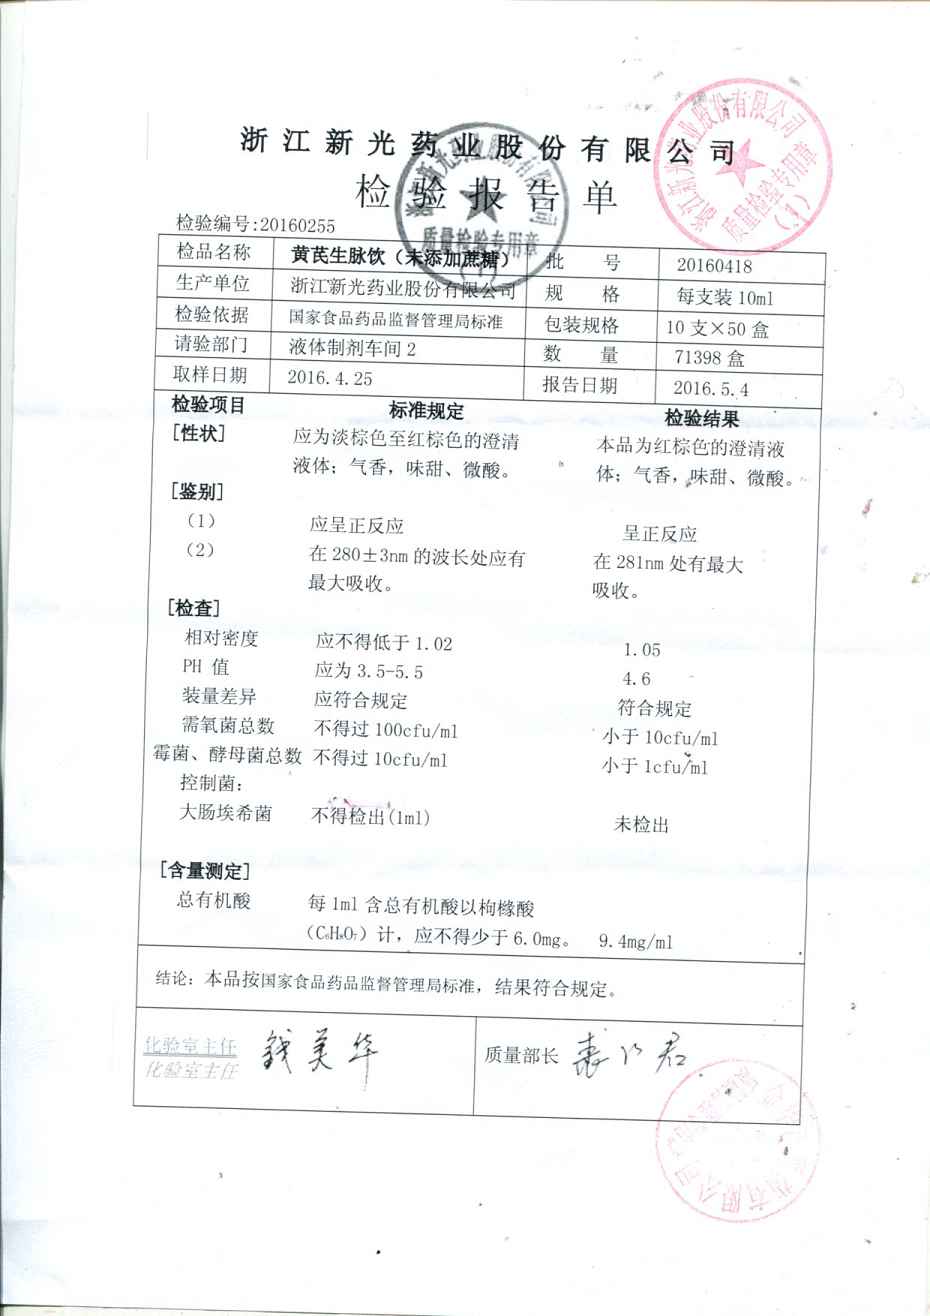 浙江新光药业股份有限公司
检验报告单
检验编号:20160255
检品名称 黄芪生脉饮（未添加蔗糖） 批 号 20160418
生产单位 浙江新光药业股份有限公司 规 格 每支装 10ml
检验依据 国家食品药品监督管理局标准 包装规格 10 支×50 盒
请验部门 液体制剂车间 2 数 量 71398 盒
取样日期 2016.4.25 报告日期 2016.5.4
检验项目 标准规定 检验结果
[性状] 应为淡棕色至红棕色的澄清 本品为红棕色的澄清液
液体；气香，味甜、微酸。 体；气香，味甜、微酸。
[鉴别]
（1） 应呈正反应 呈正反应
（2） 在 280±3nm 的波长处应有 在 281nm 处有最大
最大吸收。 吸收。
[检查]
相对密度 应不得低于 1.02 1.05
PH 值 应为 3.5-5.5 4.6
装量差异 应符合规定 符合规定
需氧菌总数 不得过 100cfu/ml 小于 10cfu/ml
霉菌、酵母菌总数 不得过 10cfu/ml 小于 1cfu/ml
控制菌：
大肠埃希菌 不得检出(1ml) 未检出
[含量测定]
总有机酸 每 1ml 含总有机酸以枸橼酸
（C₆H₈O₇）计，应不得少于 6.0mg。 9.4mg/ml
结论：本品按国家食品药品监督管理局标准，结果符合规定。
化验室主任 钱美华 质量部长
化验室主任
浙江新光药业股份有限公司
质量检验专用章
（1）
浙江新光药业股份有限公司
质量检验专用章
（1）